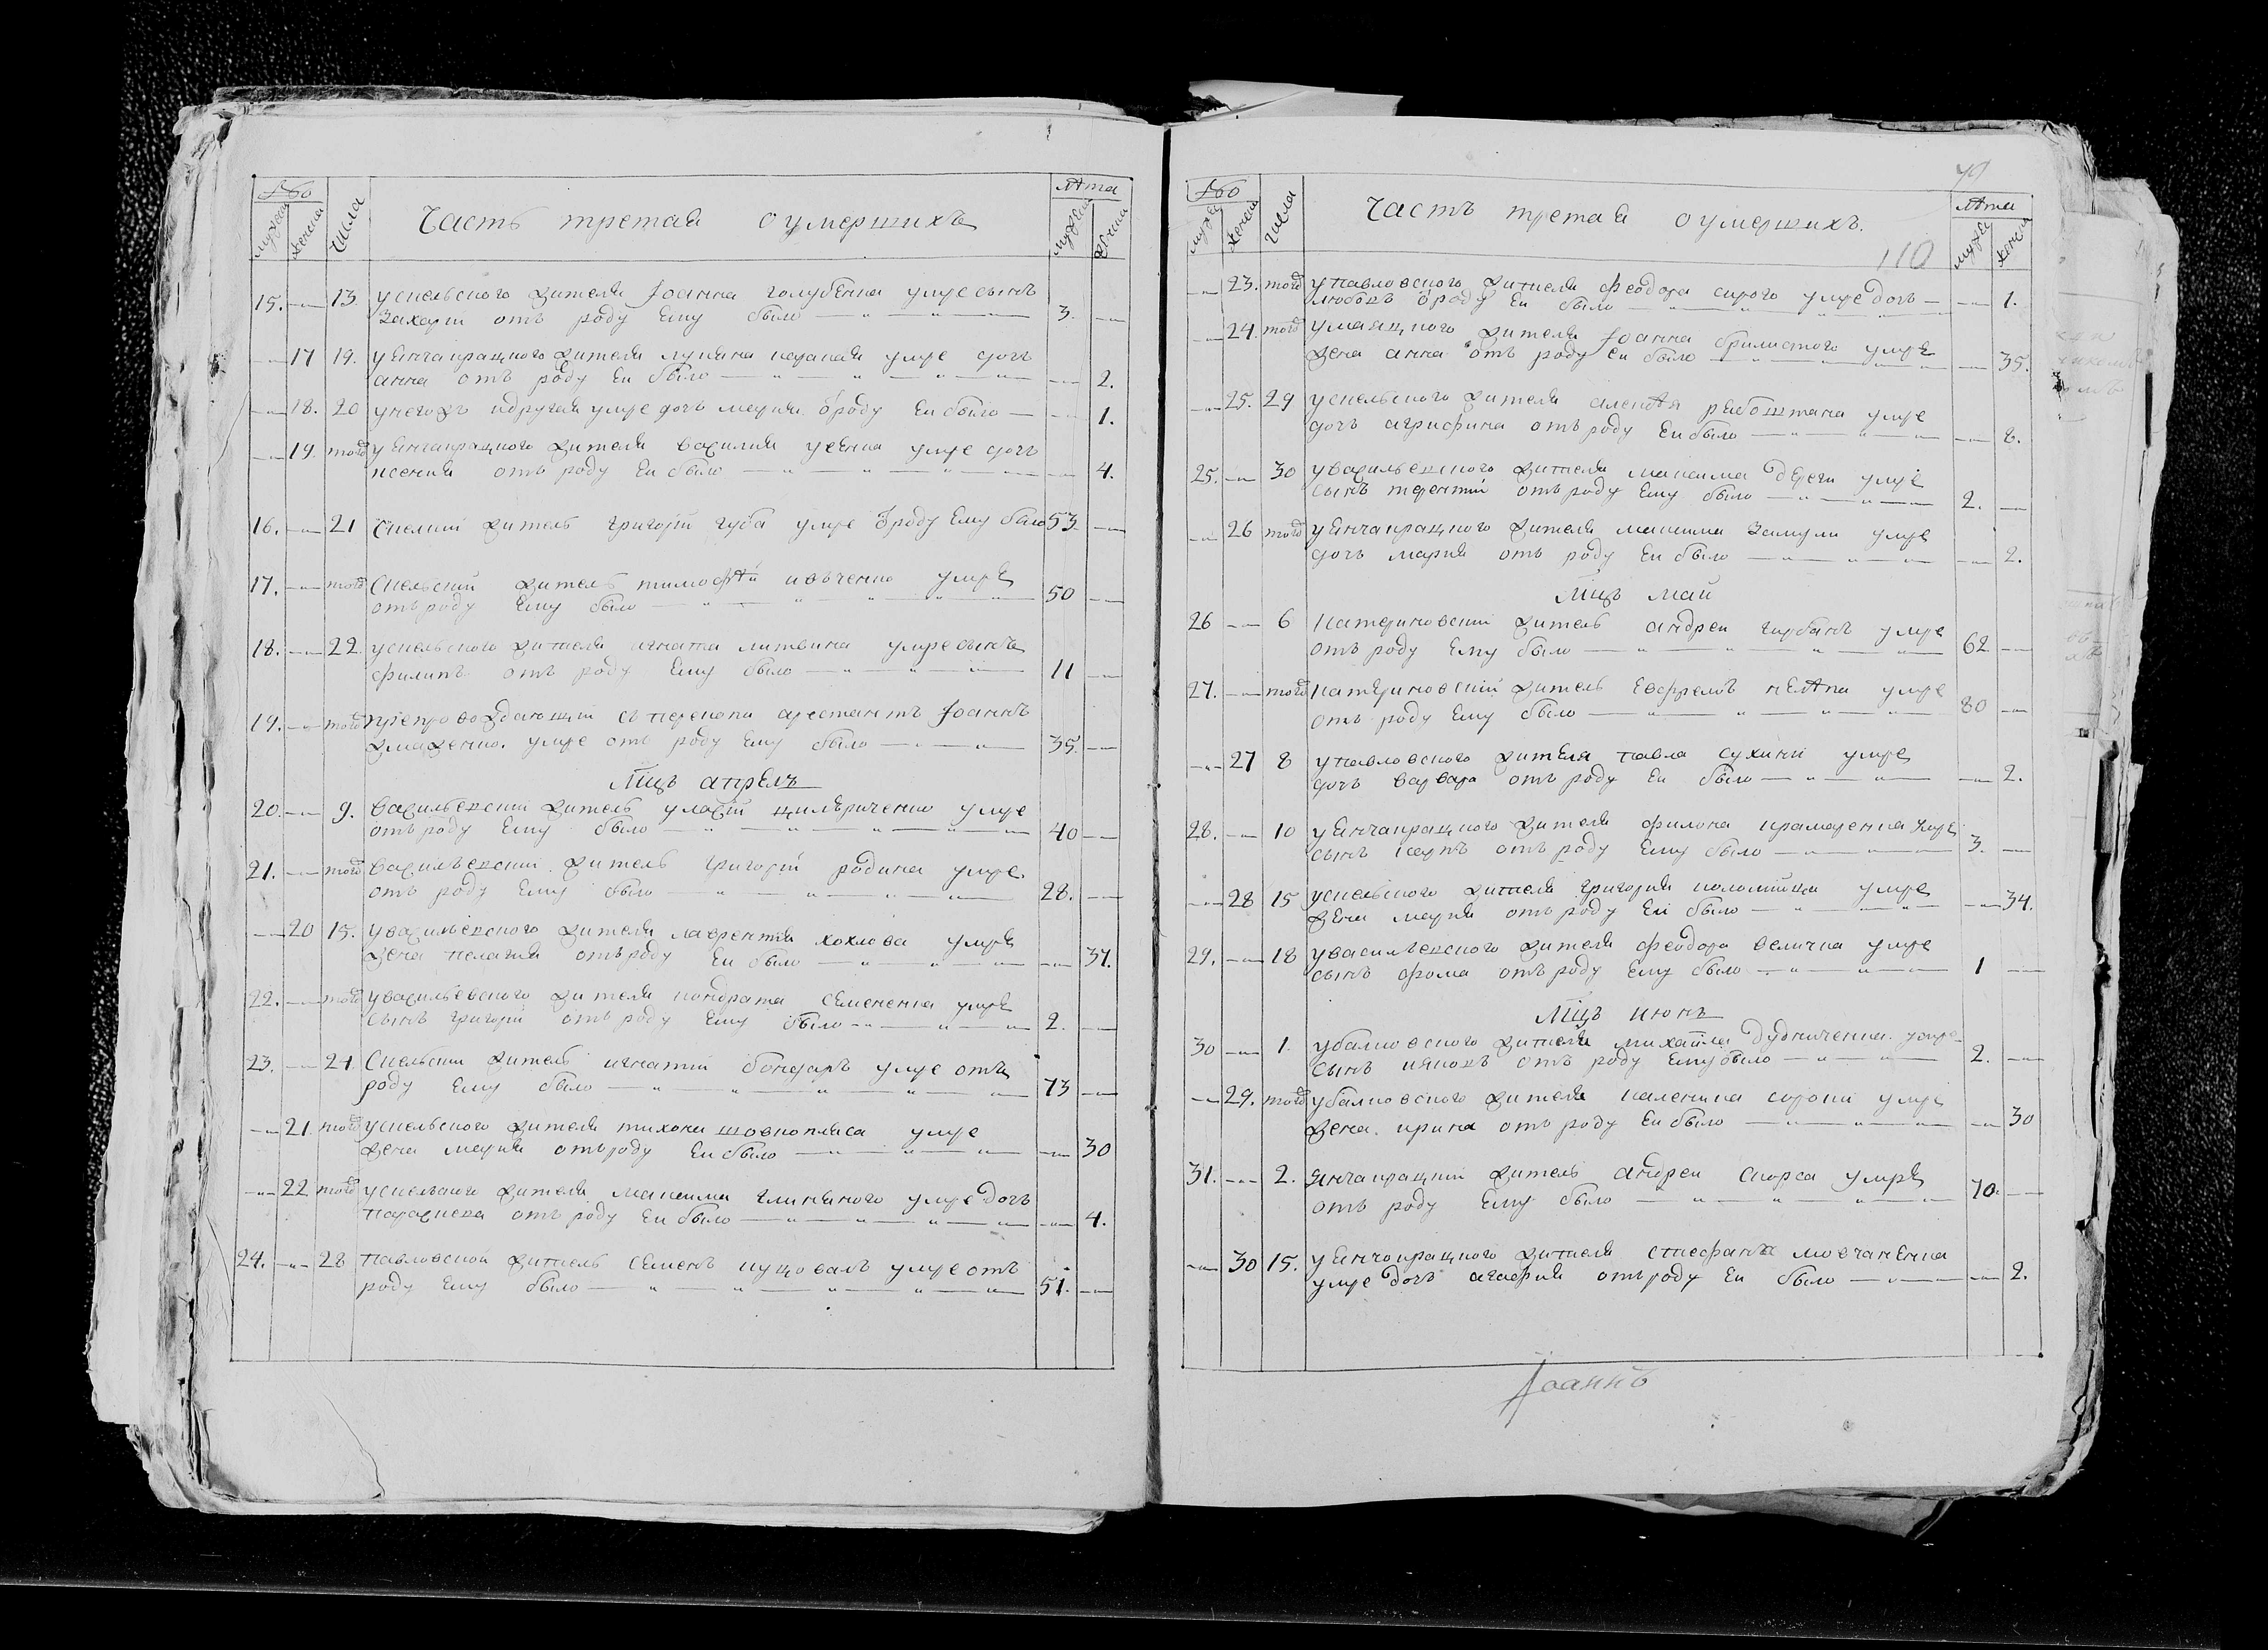 Часть третая о умершихъ
числа
лѣта
15. 13. у скельского жителя Іоанна голубенка умре сынъ
Захарій отъ роду Ему было 3.
17 19. у Янчакрацкого жителя лукяна караная умре дочь
анна отъ роду Еи было 2.
18. 20 у негожъ и другая умре дочь мария ѿ роду Еи было 1.
19. тогож у Янчакрацкого жителя василия усенка умре дочь
ксения отъ роду Еи было 4.
16. 21 Скелский житель григорій губа умре ѿ роду Ему было 53
17. тогож Скельский житель тимофѣй ивъченко умре
отъ роду Ему было 50
18. 22 у скельского жителя игната литвина умре сынъ
филипъ отъ роду Ему было 11
19. тогож препровождающий съ перекопа арестантъ Іоаннъ
умре отъ роду Ему было 35.
Мцъ апрель
20. 9. Васильевский житель умре
отъ роду Ему было 40
21. тогож Васильевский житель григорій родика умре
отъ роду Ему было 28.
20 15. у васильевского жителя лаврентія хохлова умре
жена пелагия отъ роду Еи было 37.
22. тогож у васильевского жителя кондрата Семененка умре
сынъ григорій отъ роду Ему было 2.
23. 24 Скельский житель игнатій бондарь умре отъ
роду Ему было 73
21. тогож у скельского жителя тихона шовкопляса умре
жена мария отъ роду Еи было 30
22 тогож у скельского жителя максима глиняного умре дочь
параскева отъ роду Еи было 4.
24. 28 павловской житель Семенъ куцоваль умре отъ
роду Ему было 51.
Часть третая о умершихъ.
110
числа
лѣта
23. тогож у павловского жителя феодора сирого умре дочь
любовь ѿ роду Еи было 1.
24. тогож у маяцкого жителя Іоанна брилистого умре
жена анна отъ роду Еи было 35.
25. 29 у скельского жителя алексѣя рябоштана умре
дочь агрифина отъ роду Еи было 8.
25. 30 у васильевского жителя максима дереги умре
сынъ терентій отъ роду Ему было 2.
26 тогож у Янчакрацкого жителя максима Замули умре
дочь мария отъ роду Еи было 2.
Мцъ май
26 6 катериновский житель андреи горбань умре
отъ роду Ему было 62
27. тогож катериновский житель Евфремъ умре
отъ роду Ему было 80
27 8 у павловского жителя павла сухини умре
дочь варвара отъ роду Еи было 2.
28. 10 у Янчакрацкого жителя филона крамаренка умре
сынъ карпъ отъ роду Ему было 3.
28 15 у скельского жителя григория коломійца умре
жена мария отъ роду Еи было 34.
29. 18 у васильевского жителя феодора величка умре
сынъ фома отъ роду Ему было 1
Мцъ июнь
30 1. у балковского жителя михаила дудниченка умре
сынъ ияковъ отъ роду Ему было 2.
29. тогож у балковского жителя каленика сороки умре
жена ирина отъ роду Еи было 30
31. 2. Янчакрацкий житель андреи скорса умре
отъ роду Ему было 70.
30 15. у Янчакрацкого жителя стефана мовчаненка
умре дочь агафия отъ роду Еи было 2.
Іоаннъ